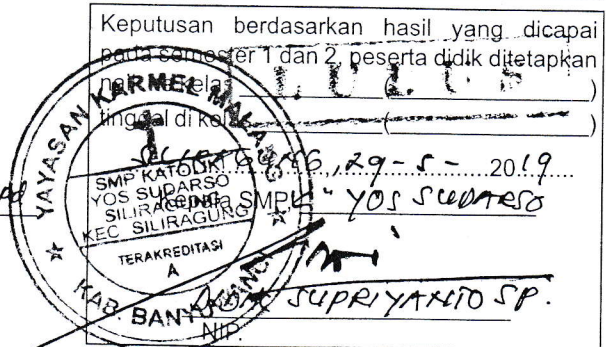 Keputusan berdasarkan hasil yang dicapai
pada semester 1 dan 2, peserta didik ditetapkan
L U L U S
tinggal di kelas ( )
29 - 5 - 2019
Kepala SMPK " YOS SUDARSO
SUPRIYANTO SP.
NIP.
YAYASAN KARMEL MALANG
SMP KATOLIK
YOS SUDARSO
SILIRAGUNG
KEC SILIRAGUNG
TERAKREDITASI
A
KAB. BANYUWANGI